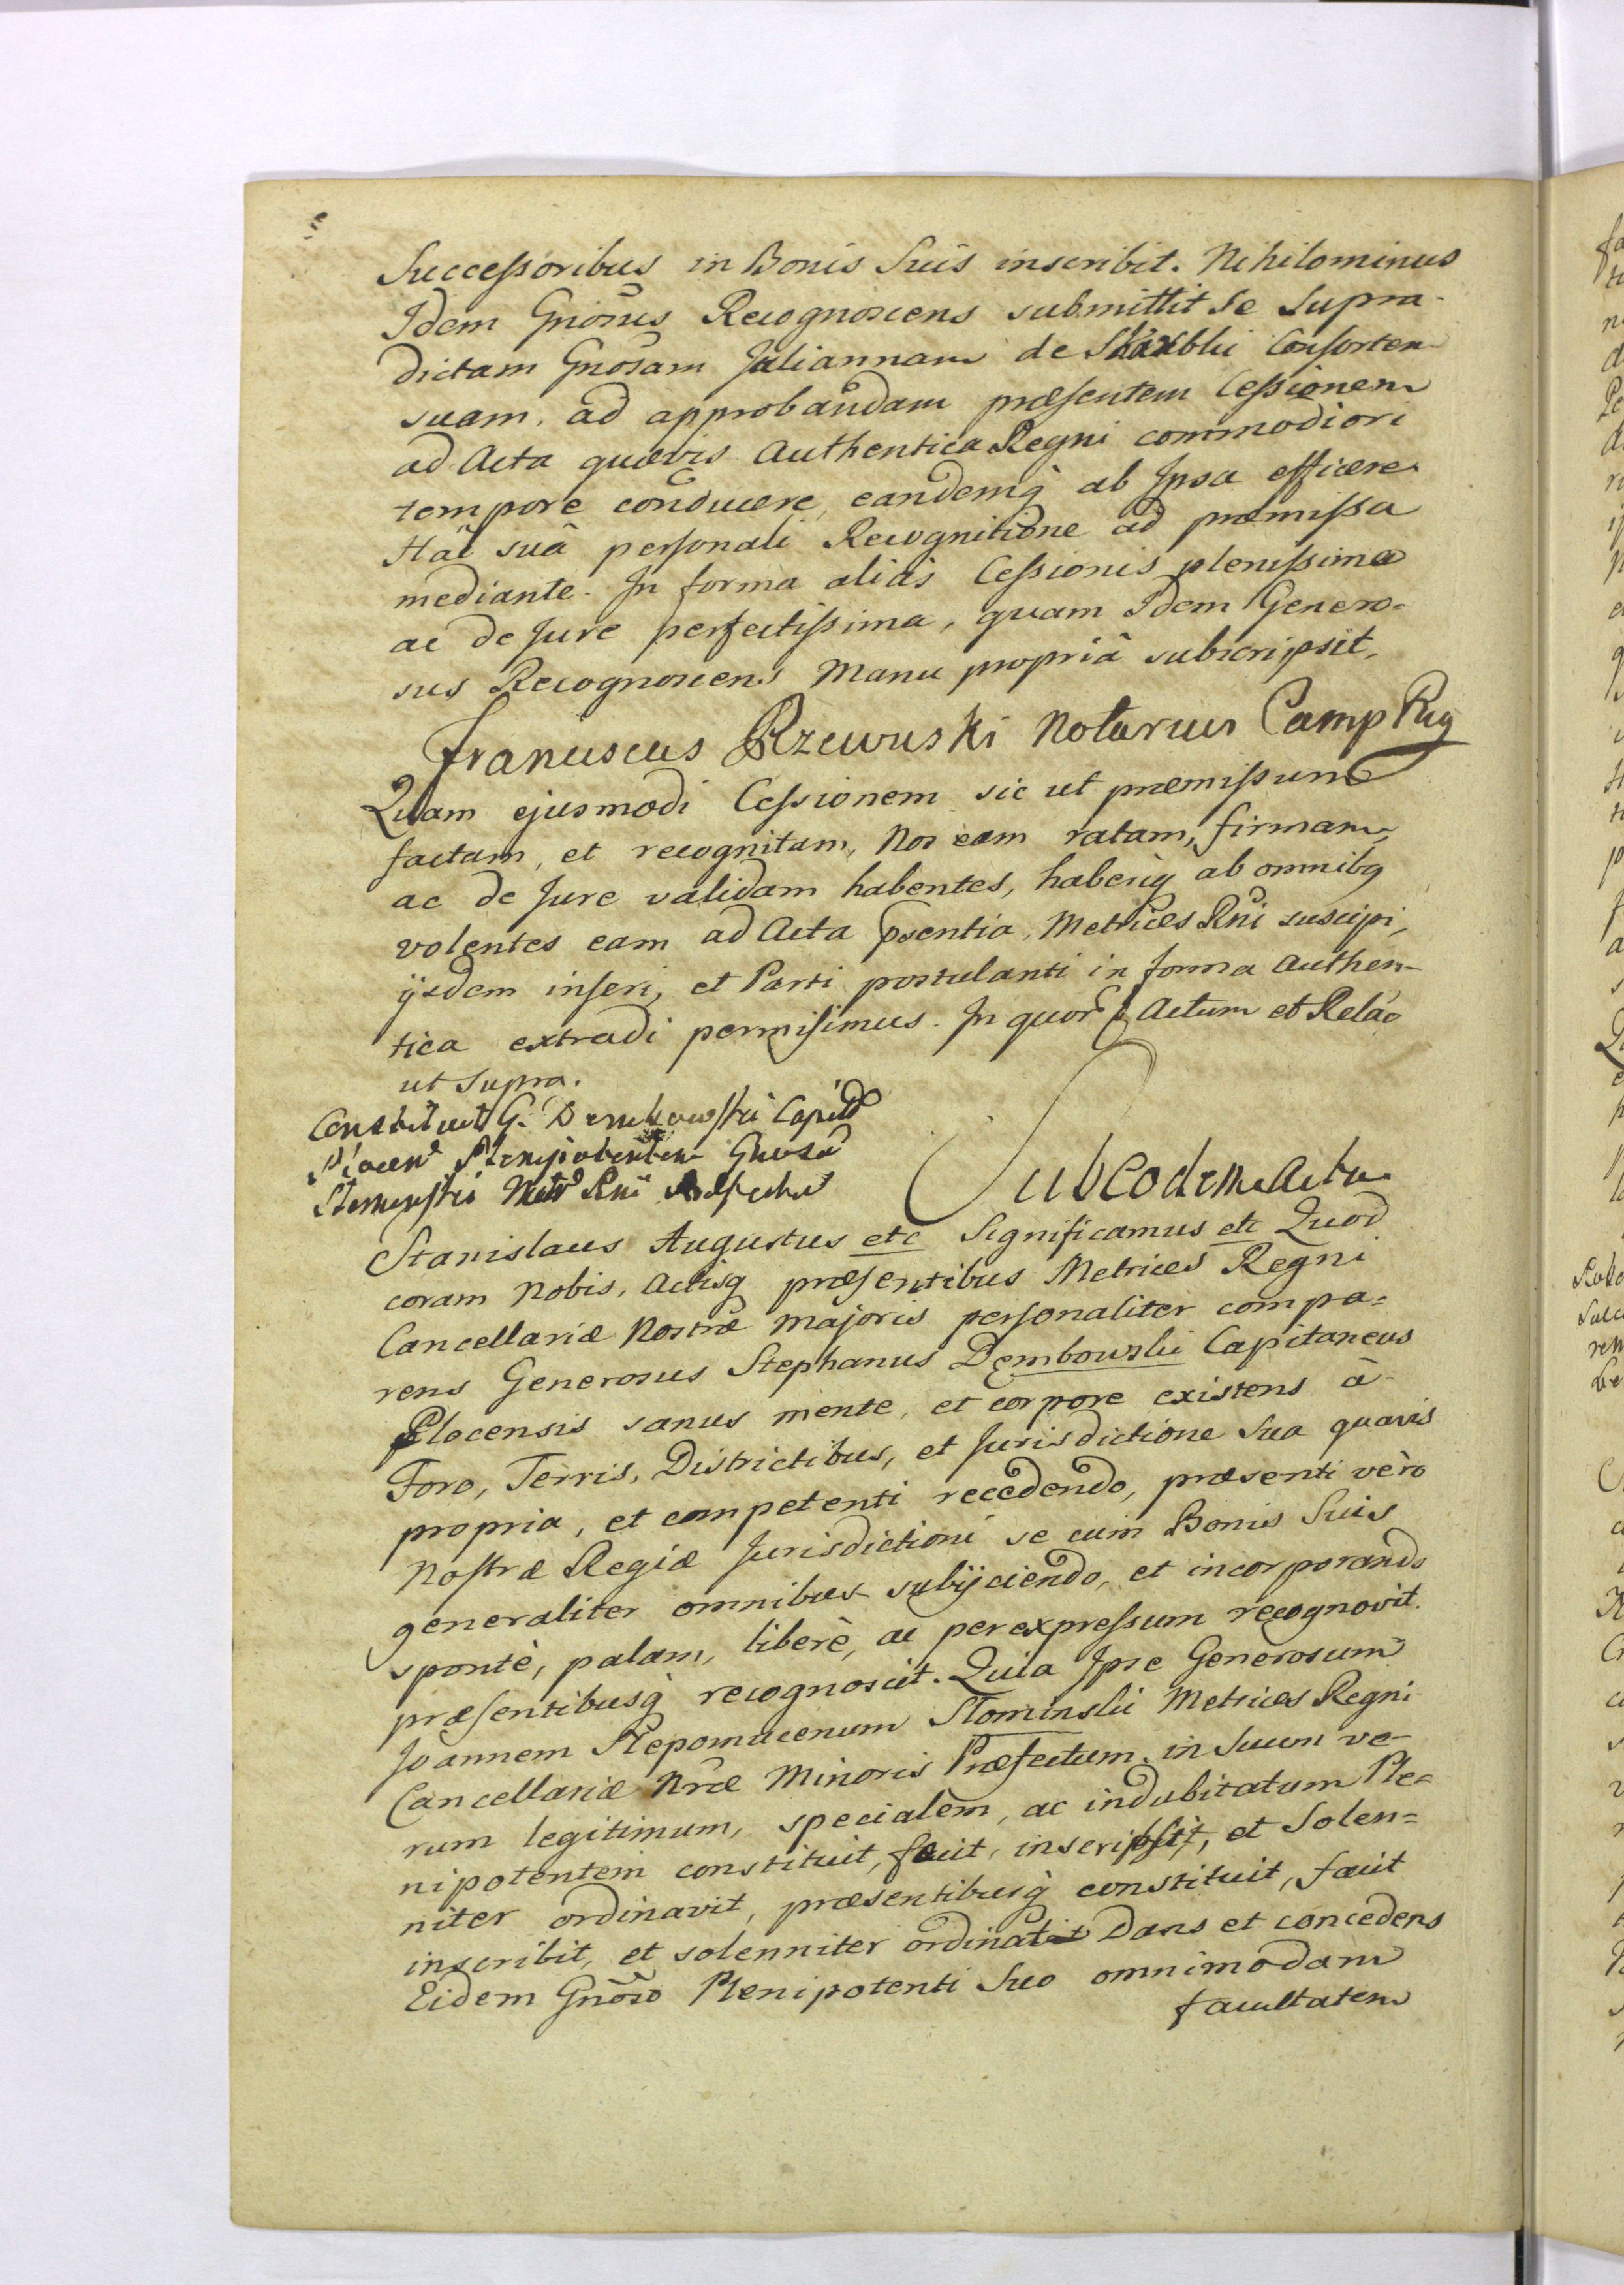 Successoribus in Bonis Suis inscribit. Nihilominus
Idem Gnõsus Recognoscens submittit se Supra-
dictam Gnosam Juliannam de Skarbki Consortem
suam, ad approbandam præsentem Cessionem
ad Acta quævis Authentica Regni commodiori
tempore conducere, eandemq́ ab Ipsa efficere
Hác suâ personali Recognitione ad præmissa
mediante. In forma aliás Cessionis plenissima
ac de Jure perfectissima, quam Idem Genero=
sus Recognoscens Manu propriâ subscripsit,
Franciscus Rzewuski Notarius Camp Reg
Quam ejusmodi Cessionem sic ut præmissum
factam, et recognitam, Nos eam ratam, firmam,
ac de Jure validam habentes, haberiq́ ab omnibq
volentes eam ad Acta psentia, Metrices Rñi suscipi,
ijsdem inseri, et Parti postulanti in forma Authen-
tica extradi permisimus. In quor̃ Actum et Relão
ut Supra.
Constituit G. Dembowski Capit̃
Plocen Plenipotentem Gnosũ
Słominski Metr Rni Præfectũ
Sub Eodem Actu
Stanislaus Augustus etc Significamus etc Quod
coram Nobis, Actisq præsentibus Metrices Regni
Cancellariæ Nostræ Majoris personaliter compa=
rens Generosus Stephanus Dembowski Capitaneus
Plocensis sanus mente, et corpore existens à
Foro, Terris, Districtibus, et Jurisdictione Sua quavis
propria, et competenti recedendo, præsenti verò
Nostræ Regiæ Jurisdictioni se cum Bonis Suis
generaliter omnibus subijciendo, et incorporando
spontè, palam, liberè, ac per expressum recognovit.
præsentibusq́ recognoscit. Quia Ipse Generosum
Joannem Nepomucenum Słominski Metrices Regni
Cancellariæ Nrãe Minoris Præfectum, in Suum ve-
rum legitimum, specialem, ac indubitatum Ple=
nipotentem constituit, fecit, inscripsit, et Solen=
niter ordinavit, præsentibusq́ constituit, facit
inscribit, et solenniter ordinat Dans et concedens
Eidem Gnõso Plenipotenti Suo omnimodam
facultatem